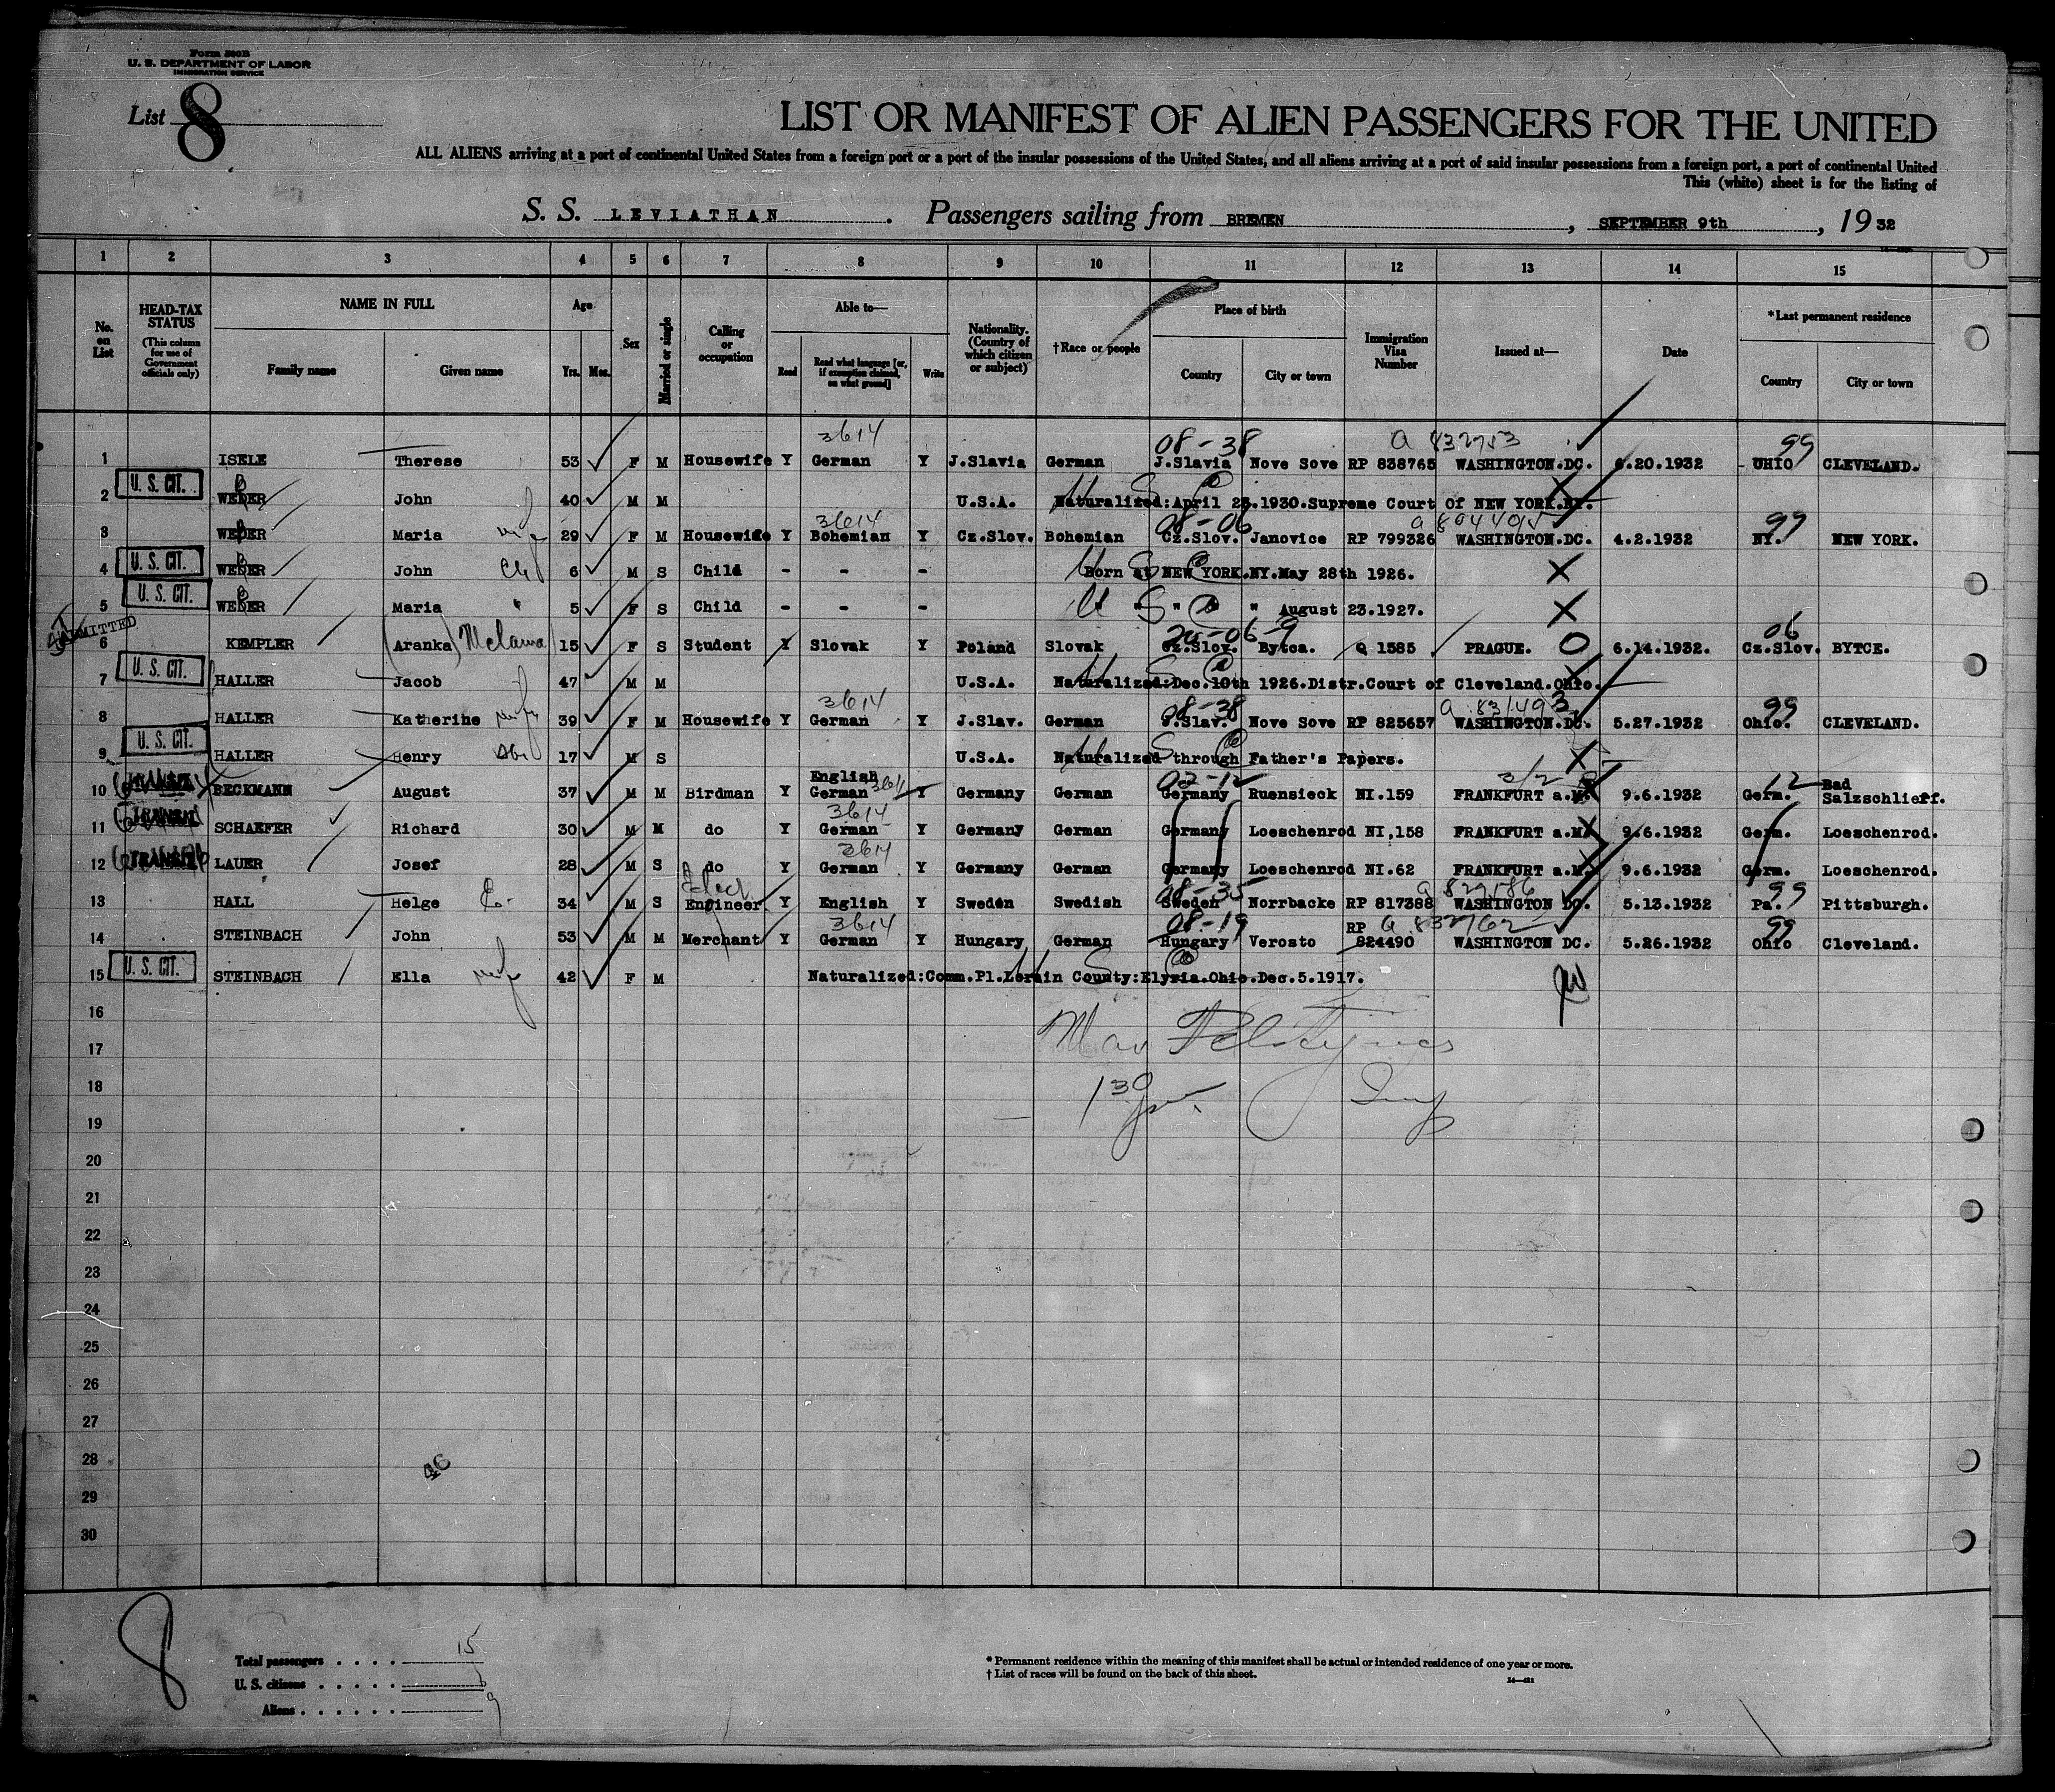 Form 500B
U. S. DEPARTMENT OF LABOR
IMMIGRATION SERVICE
List 8
LIST OR MANIFEST OF ALIEN PASSENGERS FOR THE UNITED
ALL ALIENS arriving at a port of continental United States from a foreign port or a port of the insular possessions of the United States, and all aliens arriving at a port of said insular possessions from a foreign port, a port of continental United
This (white) sheet is for the listing of
S. S. LEVIATHAN. Passengers sailing from BREMEN, SEPTEMBER 9th, 1932
1 2 3 4 5 6 7 8 9 10 11 12 13 14 15
No. on List
HEAD-TAX STATUS (This column for use of Government officials only)
NAME IN FULL Family name Given name
Age Yrs. Mos.
Sex
Married or single
Calling or occupation
Able to— Read Read what language [or, if exemption claimed, on what ground] Write
Nationality. (Country of which citizen or subject)
†Race or people
Place of birth Country City or town
Immigration Visa Number
Issued at—
Date
*Last permanent residence Country City or town
3614 08-38 a 432753 99
1 ISELE Therese 53 F M Housewife Y German Y J.Slavia German J.Slavia Nove Sove RP 838765 WASHINGTON.DC. 6.20.1932 OHIO CLEVELAND.
2 U. S. CIT. WEBER John 40 M M U.S.A. Naturalized:April 23.1930.Supreme Court of NEW YORK.NY. U S C
3614 08-06 99
3 WEBER Maria wife 29 F M Housewife Y Bohemian Y Cz.Slov. Bohemian Cz.Slov. Janovice RP 799326 WASHINGTON.DC. 4.2.1932 NY. NEW YORK.
4 U. S. CIT. WEBER John Ch 6 M S Child - - - Born at NEW YORK.NY.May 28th 1926. U S C X
5 U. S. CIT. WEBER Maria " 5 F S Child - - - " " " " August 23.1927. U S C X
ADMITTED 20-06-9 06
6 KEMPLER (Aranka) 15 F S Student Y Slovak Y Poland Slovak Cz.Slov. Bytca. Q 1585 PRAGUE. O 6.14.1932. Cz.Slov. BYTCE.
7 U. S. CIT. HALLER Jacob 47 M M U.S.A. Naturalized:Dec.10th 1926.Distr.Court of Cleveland.Ohio. U S C
3614 08-38 a 831493 99
8 HALLER Katherine wife 39 F M Housewife Y German Y J.Slav. German J.Slav. Nove Sove RP 825657 WASHINGTON.DC. 5.27.1932 Ohio. CLEVELAND.
9 U. S. CIT. HALLER Henry 17 M S U.S.A. Naturalized through Father's Papers. U S C X
10 TRANSIT BECKMANN August 37 M M Birdman Y English German 3614 Y Germany German 02-12 Germany Ruensieck NI.159 FRANKFURT a.M. 9.6.1932 12 Germ. Bad Salzschlieff.
3614
11 TRANSIT SCHAEFER Richard 30 M M do Y German Y Germany German Germany Loeschenrod NI,158 FRANKFURT a.M. 9.6.1932 Germ. Loeschenrod.
3614
12 TRANSIT LAUER Josef 28 M S do Y German Y Germany German Germany Loeschenrod NI.62 FRANKFURT a.M. 9.6.1932 Germ. Loeschenrod.
Elect. 08-35 a 827586 99
13 HALL Helge E. 34 M S Engineer. Y English Y Sweden Swedish Sweden Norrbacke RP 817388 WASHINGTON DC. 5.13.1932 Pa. Pittsburgh.
3614 08-19 a 832762 99
14 STEINBACH John 53 M M Merchant Y German Y Hungary German Hungary Verosto RP 824490 WASHINGTON DC. 5.26.1932 Ohio Cleveland.
15 U. S. CIT. STEINBACH Ella wife 42 F M Naturalized:Comm.Pl.Lorain County:Elyria.Ohio.Dec.5.1917. U S C
16
17
18
19
20
21
22
23
24
25
26
27
28
29
30
46
8
Total passengers . . . . 15
U. S. citizens . . . . . 6
Aliens . . . . . . 9
* Permanent residence within the meaning of this manifest shall be actual or intended residence of one year or more.
† List of races will be found on the back of this sheet.